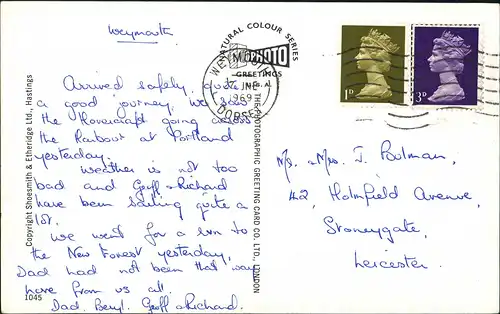 Weymouth
Arrived safely, quite
a good journey. We saw
the Hovercraft going across
the Harbour at Portland
yesterday.
Weather is not too
bad and Geoff & Richard
have been sailing quite a
lot.
We went for a run to
the New Forest yesterday,
Dad had not been that way
have from us all.
Dad, Beryl, Geoff & Richard.
1045
Copyright Shoesmith & Etheridge Ltd., Hastings
NATURAL COLOUR SERIES
PHOTO
GREETINGS
THE PHOTOGRAPHIC GREETING CARD CO. LTD., LONDON
WEYMOUTH
JNE
1969
DORSET
1D
3D
Mr. & Mrs. J. Boulman,
42, Holmfield Avenue,
Stoneygate,
Leicester.